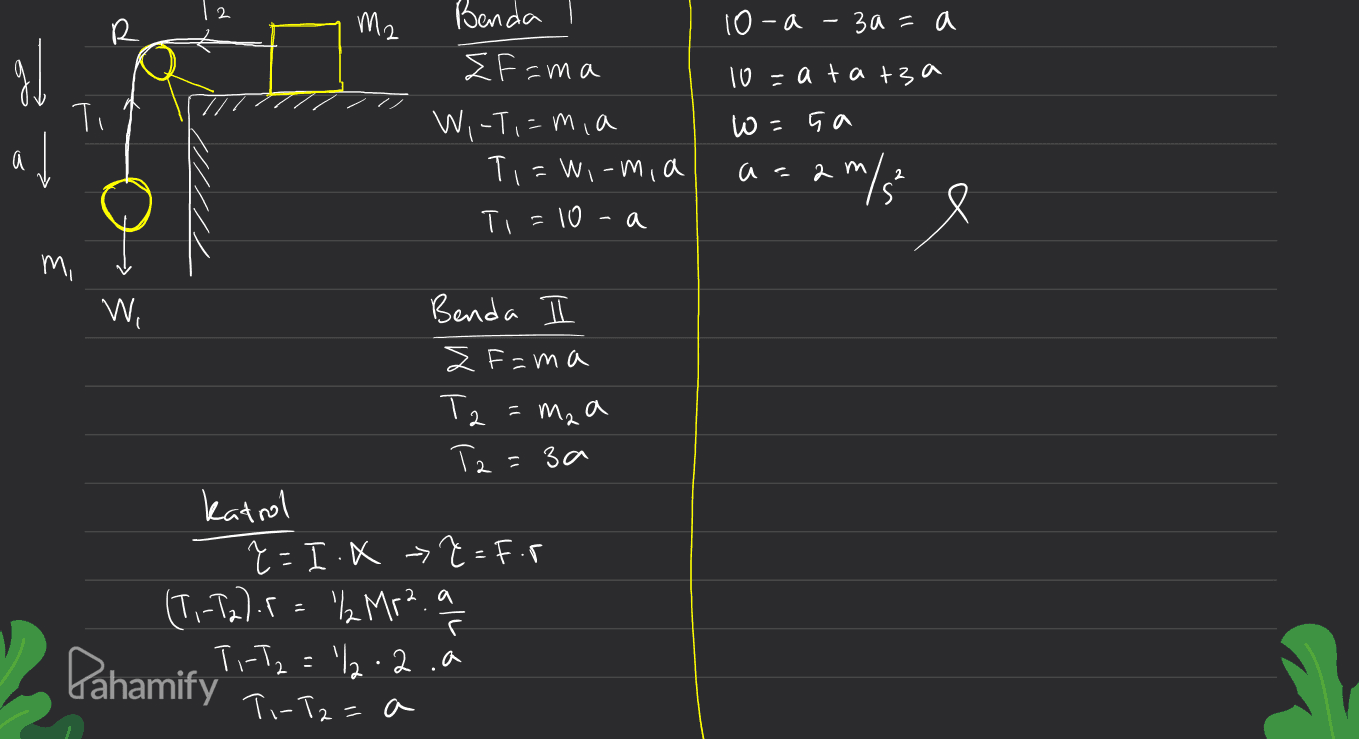 T₂
R
m₂
g
T₁
a
m₁
W₁
Benda I
ΣF = ma
W₁ - T₁ = m₁a
T₁ = W₁ - m₁a
T₁ = 10 - a
Benda II
ΣF = ma
T₂ = m₂a
T₂ = 3a
katrol
τ = I · α → τ = F · r
(T₁ - T₂) · r = 1/2 Mr² · a/r
T₁ - T₂ = 1/2 · 2 · a
T₁ - T₂ = a
10 - a - 3a = a
10 = a + a + 3a
10 = 5a
a = 2 m/s²
Pahamify